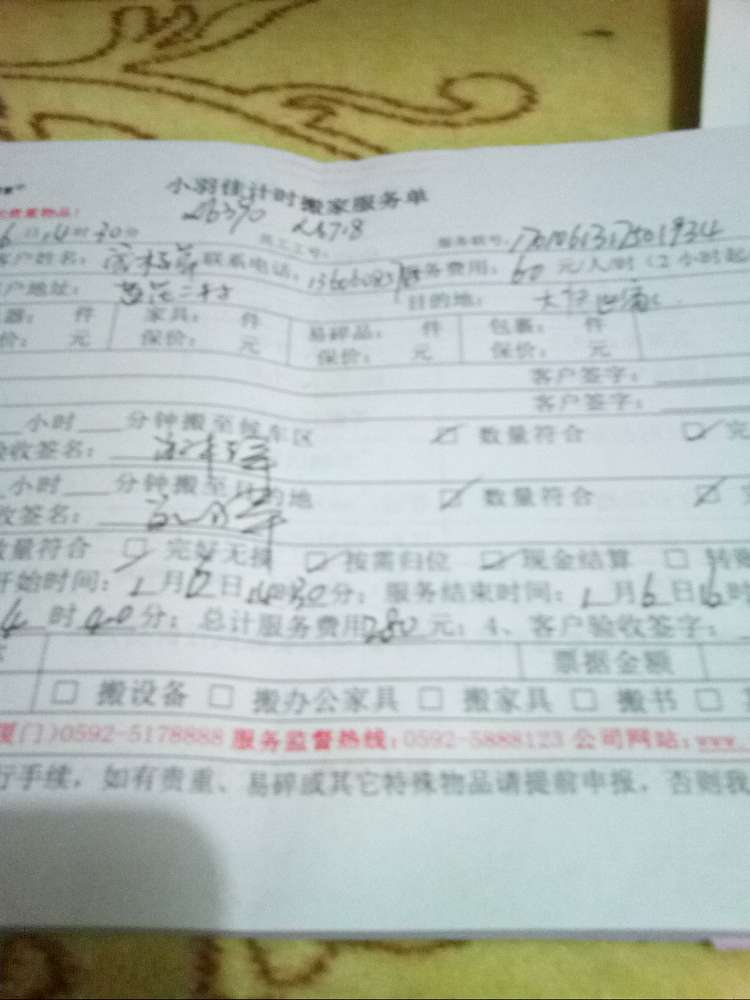 小羽佳计时搬家服务单
贵重物品！
26390 2678
6日14时30分 员工工号： 服务联号：
客户姓名： 联系电话： 服务费用：60元/人/时（2小时起
户地址： 目的地：
器： 件 家具： 件 易碎品： 件 包裹： 件
价： 元 保价： 元 保价： 元 保价： 元
客户签字：
客户签字：
小时 分钟搬至候车区 数量符合 完
验收签名：
小时 分钟搬至目的地 数量符合 完
收签名：
数量符合 完好无损 按需归位 现金结算 转账
开始时间：1月6日14时30分；服务结束时间：1月6日16时
4时40分；总计服务费用280元；4、客户验收签字：
票据金额
搬设备 搬办公家具 搬家具 搬书
厦门)0592-5178888 服务监督热线：0592-5888123 公司网站：www.
行手续，如有贵重、易碎或其它特殊物品请提前申报，否则我